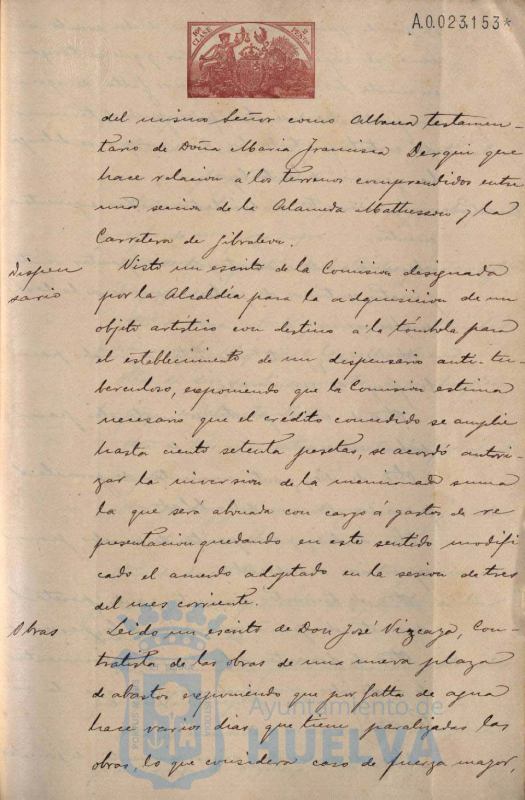 A.0.023.153*
10ª CLASE
PESETAS
del mismo Señor como Albacea testamen-
tario de Doña Maria Francisca Derqui que
hace relacion á los terrenos comprendidos entre
una seccion de la Alameda Mathesson y la
Carretera de Gibraleon.
Dispen
sario
Visto un escrito de la Comision designada
por la Alcaldía para la adquisicion de un
objeto artistico con destino á la tómbola para
el establecimiento de un dispensario anti-tu-
berculoso, exponiendo que la Comision estima
necesario que el crédito concedido se amplie
hasta ciento setenta pesetas, se acordó autori-
zar la inversion de la mencionada suma
la que será abonada con cargo á gastos de re
presentacion quedando en este sentido modifi
cado el acuerdo adoptado en la sesion de tres
del mes corriente.
Obras
Leido un escrito de Don José Vizcaya, Con-
tratista de las obras de una nueva plaza
de abastos exponiendo que por falta de agua
hace varios dias que tiene paralizadas las
obras, lo que considera caso de fuerza mayor,
Ayuntamiento de
HUELVA